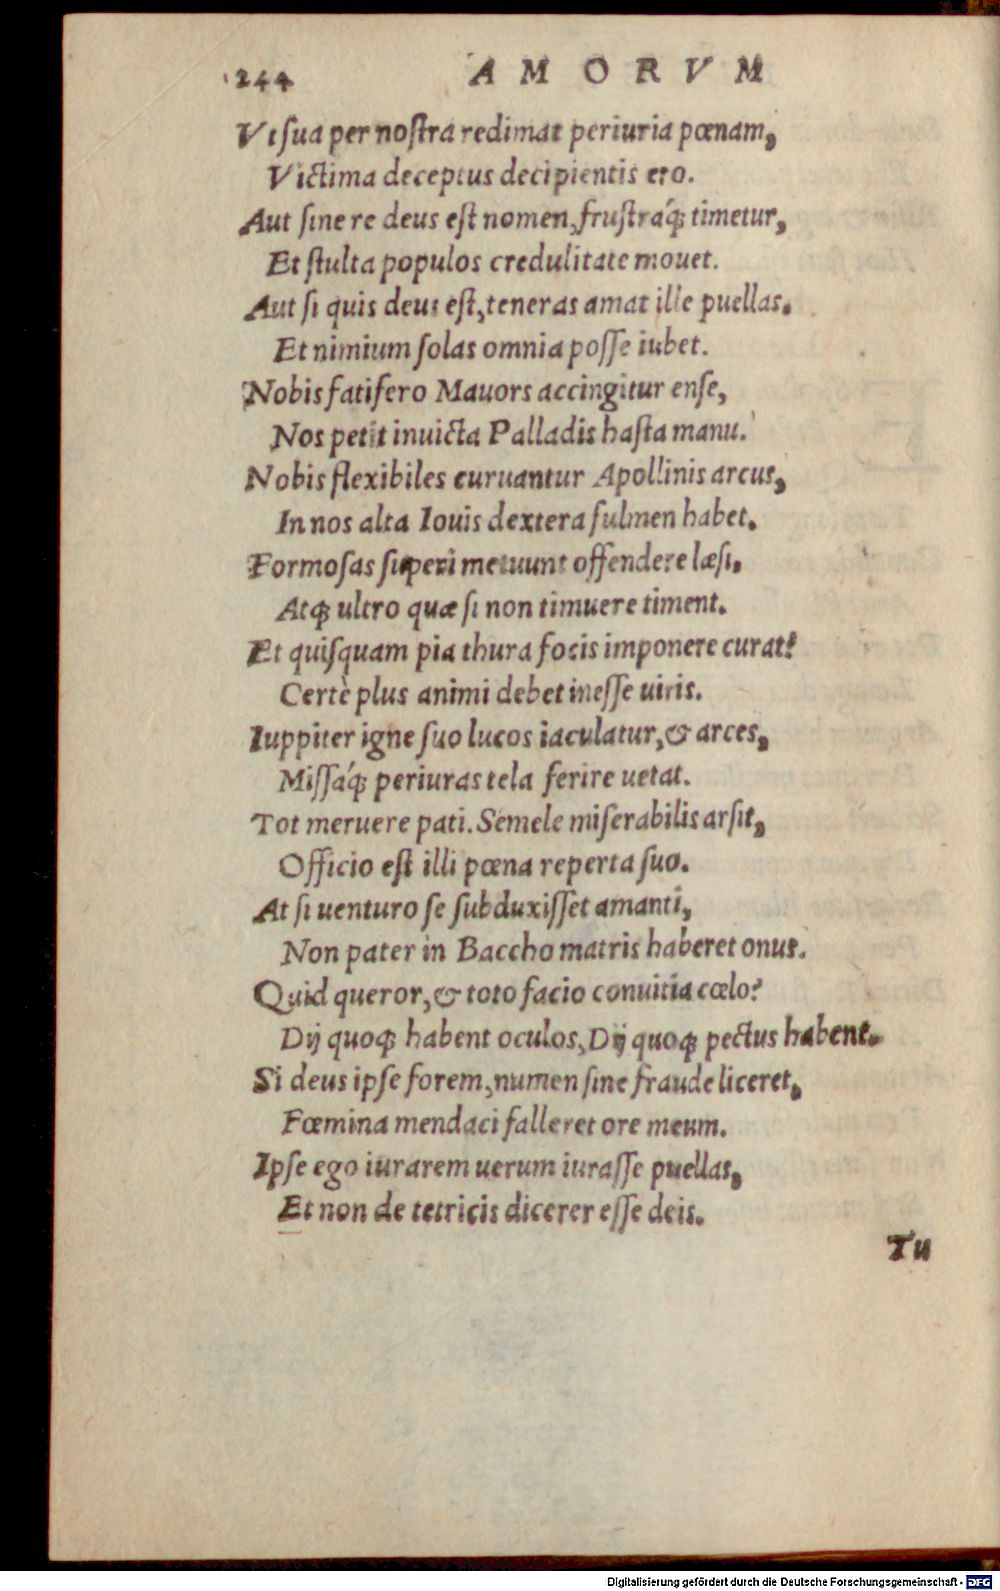 244 AMORVM
Vt ſua per noſtra redimat periuria pœnam,
Victima deceptus decipientis ero.
Aut ſine re deus eſt nomen, fruſtráq; timetur,
Et ſtulta populos credulitate mouet.
Aut ſi quis deus eſt, teneras amat ille puellas.
Et nimium ſolas omnia poſſe iubet.
Nobis fatifero Mauors accingitur enſe,
Nos petit inuicta Palladis haſta manu.
Nobis flexibiles curuantur Apollinis arcus,
In nos alta Iouis dextera fulmen habet.
Formoſas ſuperi metuunt offendere læſi,
Atq; ultro quæ ſi non timuere timent.
Et quiſquam pia thura focis imponere curat?
Certè plus animi debet ineſſe uiris.
Iuppiter igne ſuo lucos iaculatur, & arces,
Miſſáq; periuras tela ferire uetat.
Tot meruere pati. Semele miſerabilis arſit,
Officio eſt illi pœna reperta ſuo.
At ſi uenturo ſe ſubduxiſſet amanti,
Non pater in Baccho matris haberet onus.
Quid queror, & toto facio conuitia cœlo?
Dij quoq; habent oculos, Dij quoq; pectus habent.
Si deus ipſe forem, numen ſine fraude liceret,
Fœmina mendaci falleret ore meum.
Ipſe ego iurarem uerum iuraſſe puellas,
Et non de tetricis dicerer eſſe deis.
Tu
Digitalisierung gefördert durch die Deutsche Forschungsgemeinschaft - DFG